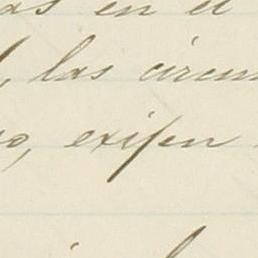 as en el
, las circun
o, exijen